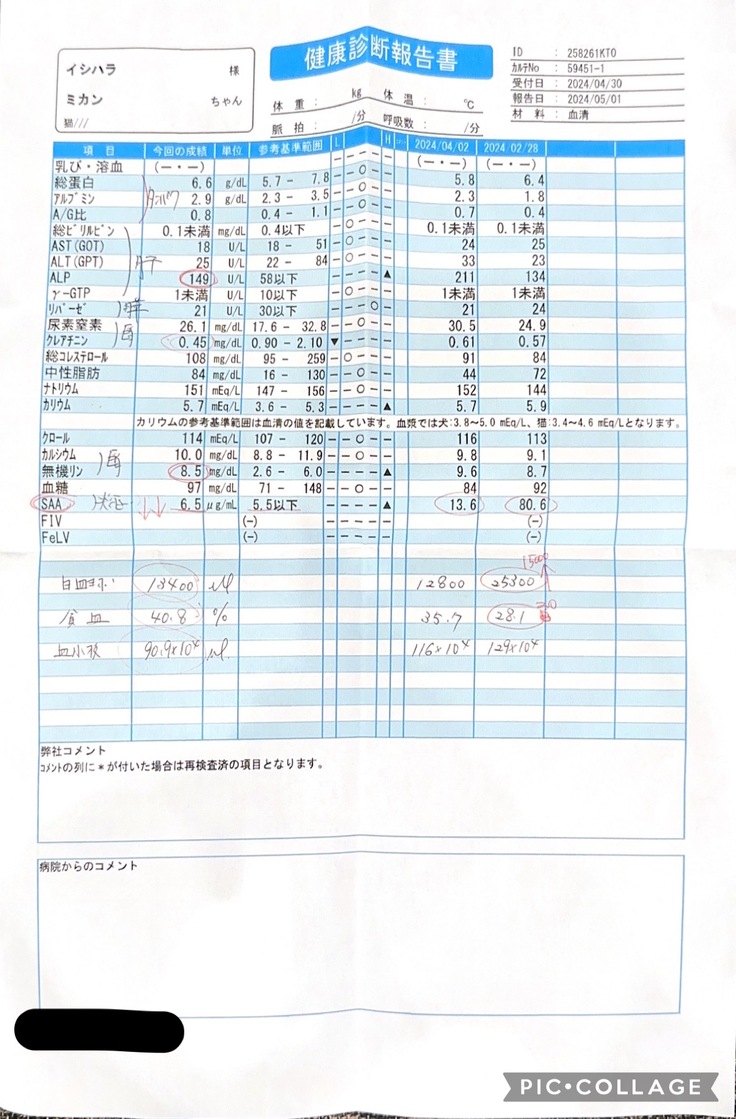 健康診断報告書
イシハラ 様
ミカン ちゃん
猫///
体重： kg 体温： ℃
脈拍： /分 呼吸数： /分
ID ： 258261KT0
カルテNo ： 59451-1
受付日 ： 2024/04/30
報告日 ： 2024/05/01
材料 ： 血清
項目 今回の成績 単位 参考基準範囲 L H 2024/04/02 2024/02/28
乳び・溶血 (ー・ー) (ー・ー) (ー・ー)
総蛋白 6.6 g/dL 5.7 - 7.8 --○-- 5.8 6.4
アルブミン 2.9 g/dL 2.3 - 3.5 --○-- 2.3 1.8
A/G比 0.8 0.4 - 1.1 --○-- 0.7 0.4
総ビリルビン 0.1未満 mg/dL 0.4以下 --○-- 0.1未満 0.1未満
AST(GOT) 18 U/L 18 - 51 -○--- 24 25
ALT(GPT) 25 U/L 22 - 84 -○--- 33 23
肝
ALP 149 U/L 58以下 ----▲ 211 134
γ-GTP 1未満 U/L 10以下 --○-- 1未満 1未満
リパーゼ 21 U/L 30以下 ---○- 21 24
膵
尿素窒素 26.1 mg/dL 17.6 - 32.8 --○-- 30.5 24.9
クレアチニン 0.45 mg/dL 0.90 - 2.10 ▼---- 0.61 0.57
総コレステロール 108 mg/dL 95 - 259 -○--- 91 84
中性脂肪 84 mg/dL 16 - 130 --○-- 44 72
ナトリウム 151 mEq/L 147 - 156 --○-- 152 144
カリウム 5.7 mEq/L 3.6 - 5.3 ----▲ 5.7 5.9
カリウムの参考基準範囲は血清の値を記載しています。血漿では犬:3.8~5.0 mEq/L、猫:3.4~4.6 mEq/Lとなります。
クロール 114 mEq/L 107 - 120 --○-- 116 113
カルシウム 10.0 mg/dL 8.8 - 11.9 --○-- 9.8 9.1
無機リン 8.5 mg/dL 2.6 - 6.0 ----▲ 9.6 8.7
血糖 97 mg/dL 71 - 148 --○-- 84 92
SAA 炎症 ↓↓ 6.5 μg/mL 5.5以下 ----▲ 13.6 80.6
FIV (-) ---- (-)
FeLV (-) ---- (-)
白血球 13400 /μl 12800 25300 15000
貧血 40.8 % 35.7 28.1 30
血小板 90.9×10⁴ /μl 116×10⁴ 129×10⁴
弊社コメント
コメントの列に*が付いた場合は再検査済の項目となります。
病院からのコメント
PIC•COLLAGE